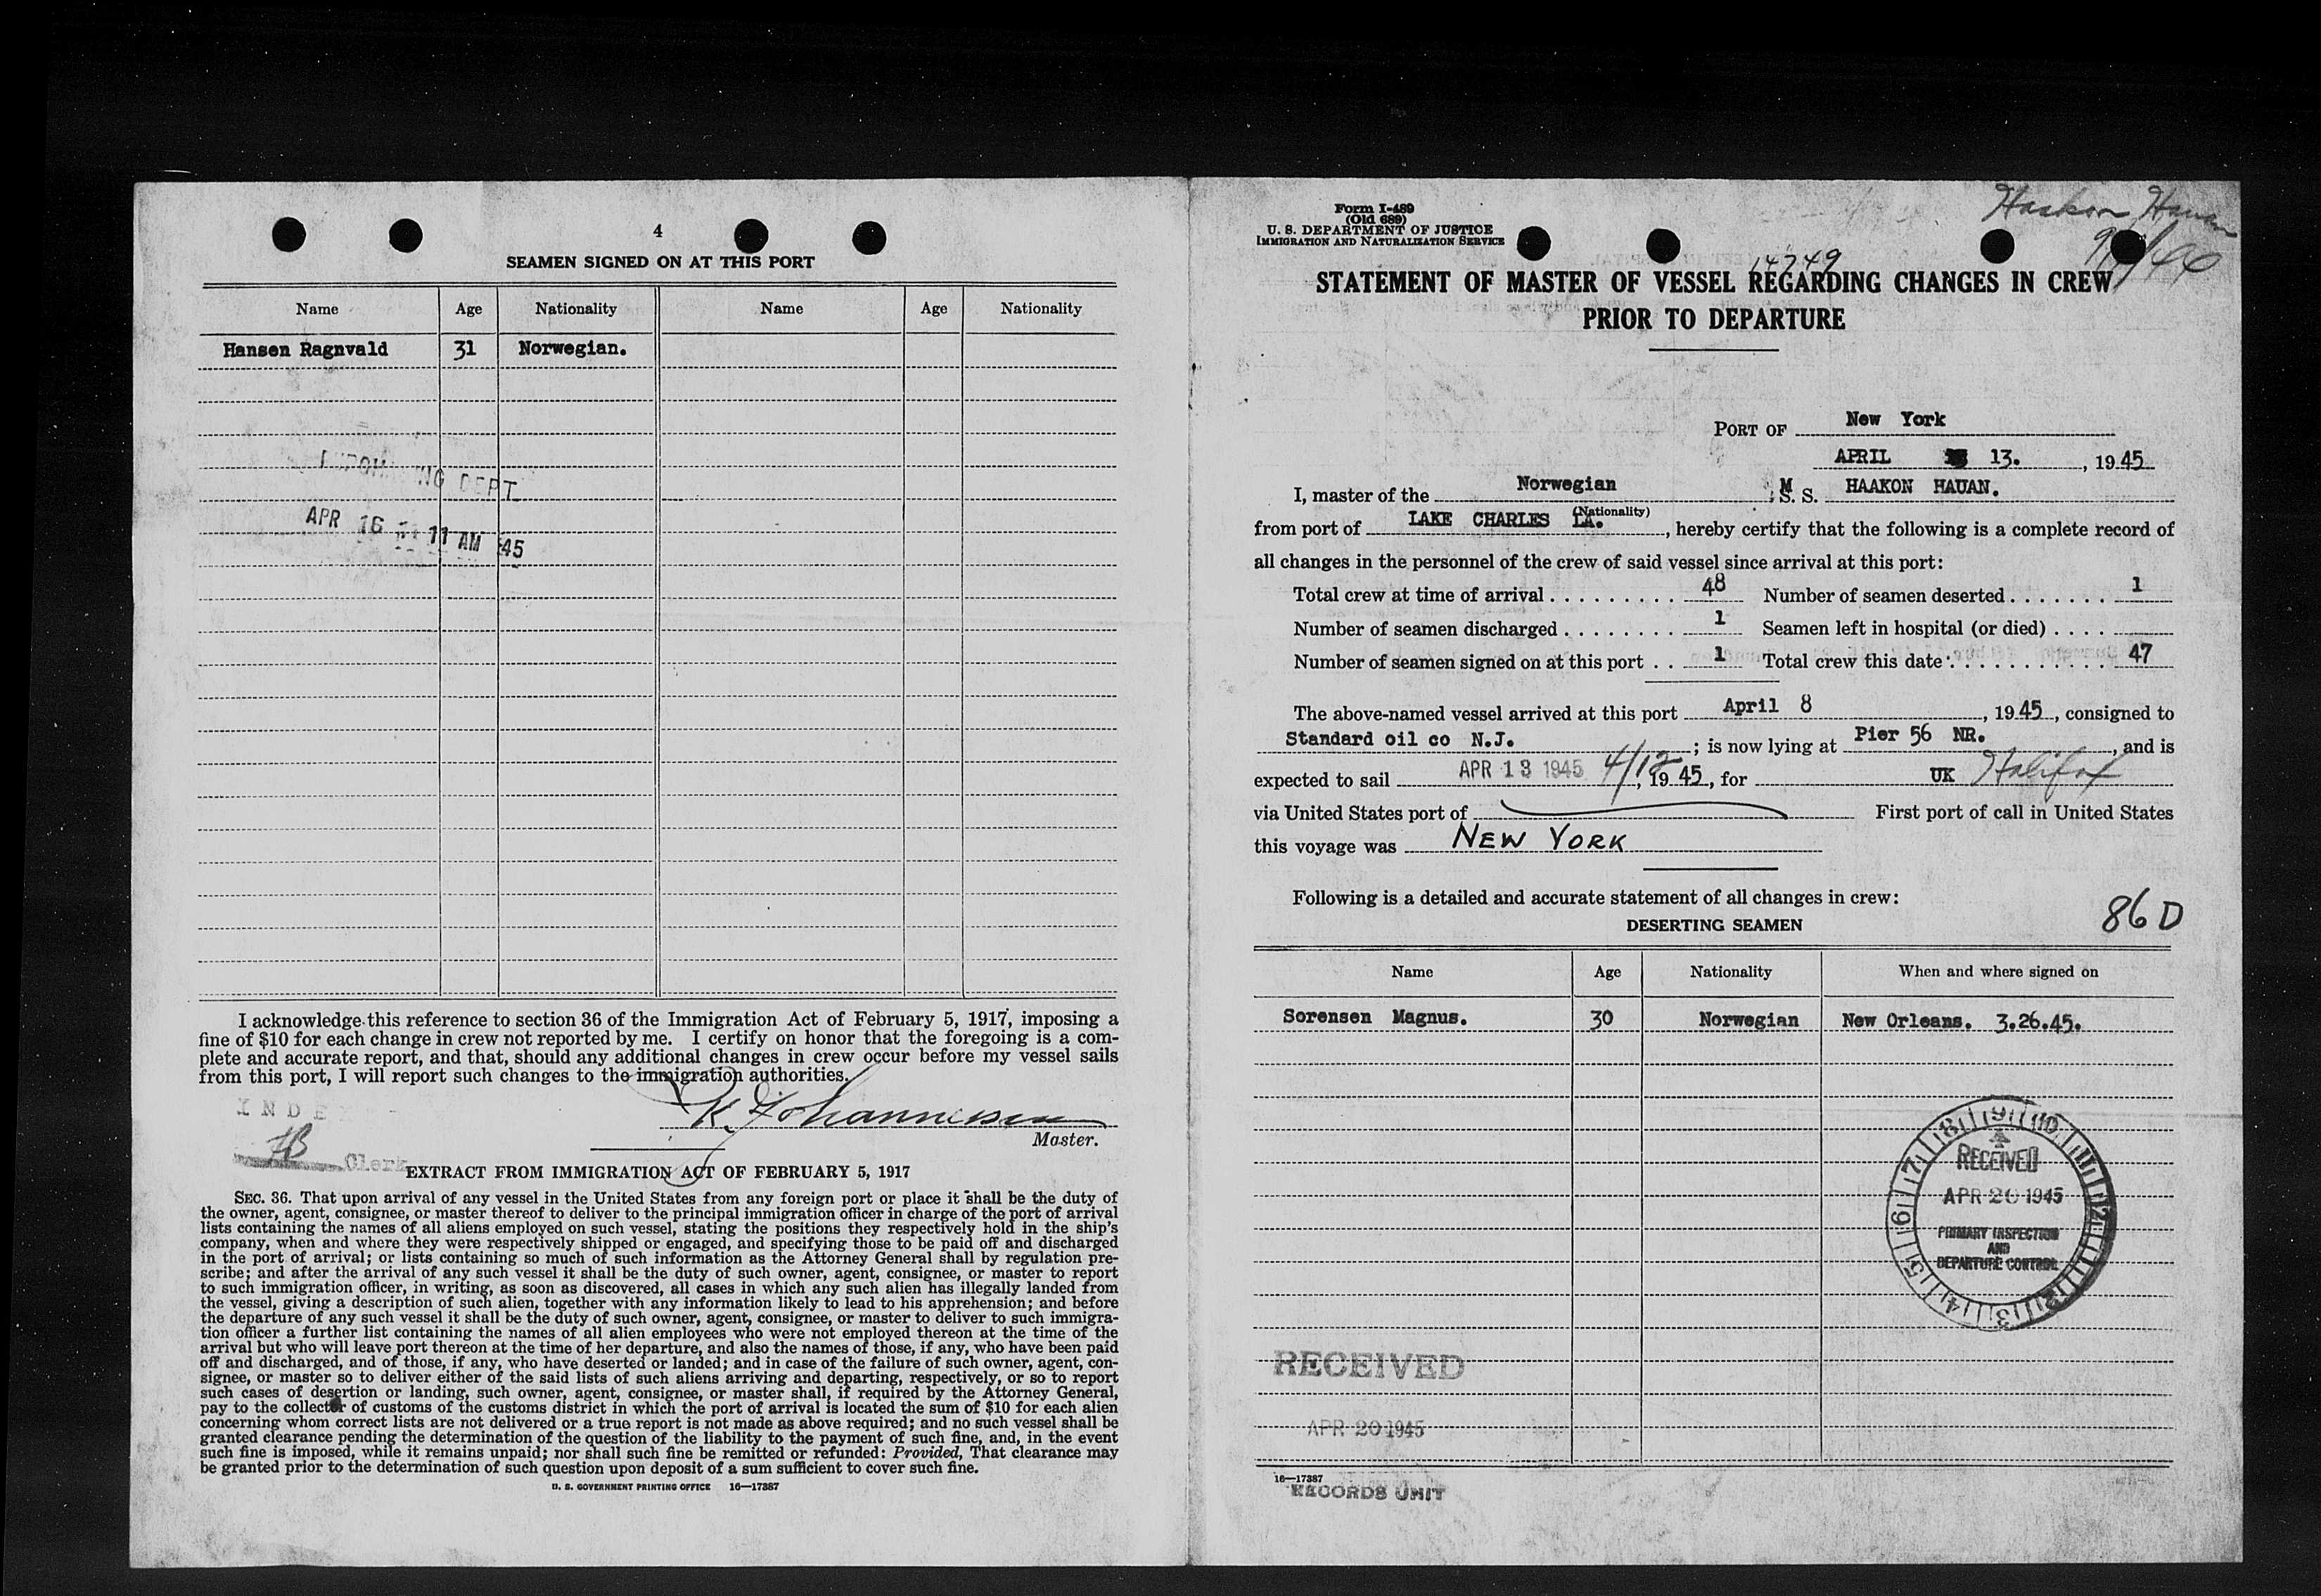 4
SEAMEN SIGNED ON AT THIS PORT
Name Age Nationality Name Age Nationality
Hansen Ragnvald 31 Norwegian.
DEPT
APR 16 11 AM '45
I acknowledge this reference to section 36 of the Immigration Act of February 5, 1917, imposing a
fine of $10 for each change in crew not reported by me. I certify on honor that the foregoing is a com-
plete and accurate report, and that, should any additional changes in crew occur before my vessel sails
from this port, I will report such changes to the immigration authorities.
K. Johannessen
Master.
Clerk
EXTRACT FROM IMMIGRATION ACT OF FEBRUARY 5, 1917
SEC. 36. That upon arrival of any vessel in the United States from any foreign port or place it shall be the duty of
the owner, agent, consignee, or master thereof to deliver to the principal immigration officer in charge of the port of arrival
lists containing the names of all aliens employed on such vessel, stating the positions they respectively hold in the ship's
company, when and where they were respectively shipped or engaged, and specifying those to be paid off and discharged
in the port of arrival; or lists containing so much of such information as the Attorney General shall by regulation pre-
scribe; and after the arrival of any such vessel it shall be the duty of such owner, agent, consignee, or master to report
to such immigration officer, in writing, as soon as discovered, all cases in which any such alien has illegally landed from
the vessel, giving a description of such alien, together with any information likely to lead to his apprehension; and before
the departure of any such vessel it shall be the duty of such owner, agent, consignee, or master to deliver to such immigra-
tion officer a further list containing the names of all alien employees who were not employed thereon at the time of the
arrival but who will leave port thereon at the time of her departure, and also the names of those, if any, who have been paid
off and discharged, and of those, if any, who have deserted or landed; and in case of the failure of such owner, agent, con-
signee, or master so to deliver either of the said lists of such aliens arriving and departing, respectively, or so to report
such cases of desertion or landing, such owner, agent, consignee, or master shall, if required by the Attorney General,
pay to the collector of customs of the customs district in which the port of arrival is located the sum of $10 for each alien
concerning whom correct lists are not delivered or a true report is not made as above required; and no such vessel shall be
granted clearance pending the determination of the question of the liability to the payment of such fine, and, in the event
such fine is imposed, while it remains unpaid; nor shall such fine be remitted or refunded: Provided, That clearance may
be granted prior to the determination of such question upon deposit of a sum sufficient to cover such fine.
U. S. GOVERNMENT PRINTING OFFICE 16—17387
Form I-489
(Old 689)
U. S. DEPARTMENT OF JUSTICE
IMMIGRATION AND NATURALIZATION SERVICE
Haakon Hauan
14749
STATEMENT OF MASTER OF VESSEL REGARDING CHANGES IN CREW
PRIOR TO DEPARTURE
PORT OF New York
APRIL 13. , 1945
I, master of the Norwegian M S. S. HAAKON HAUAN.
(Nationality)
from port of LAKE CHARLES LA. , hereby certify that the following is a complete record of
all changes in the personnel of the crew of said vessel since arrival at this port:
Total crew at time of arrival 48 Number of seamen deserted 1
Number of seamen discharged 1 Seamen left in hospital (or died)
Number of seamen signed on at this port 1 Total crew this date 47
The above-named vessel arrived at this port April 8 , 1945, consigned to
Standard oil co N.J. ; is now lying at Pier 56 NR. , and is
expected to sail APR 13 1945 4/12, 1945, for UK Halifax
via United States port of First port of call in United States
this voyage was NEW YORK
Following is a detailed and accurate statement of all changes in crew:
86 D
DESERTING SEAMEN
Name Age Nationality When and where signed on
Sorensen Magnus. 30 Norwegian New Orleans. 3.26.45.
RECEIVED
APR 20 1945
PRIMARY INSPECTION
AND
DEPARTURE CONTROL
RECEIVED
APR 20 1945
16—17387
RECORDS UNIT